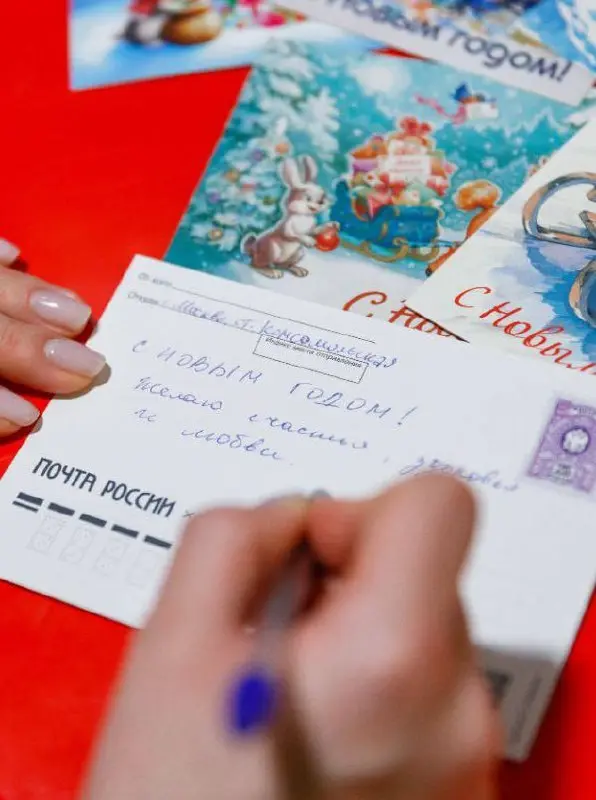 Новым годом!
С Новым
С Но
От кого
Откуда г. Москва ул. Комсомольская
Индекс места отправления
С НОВЫМ ГОДОМ!
Желаю счастия, здоровья
и любви.
ПОЧТА РОССИИ